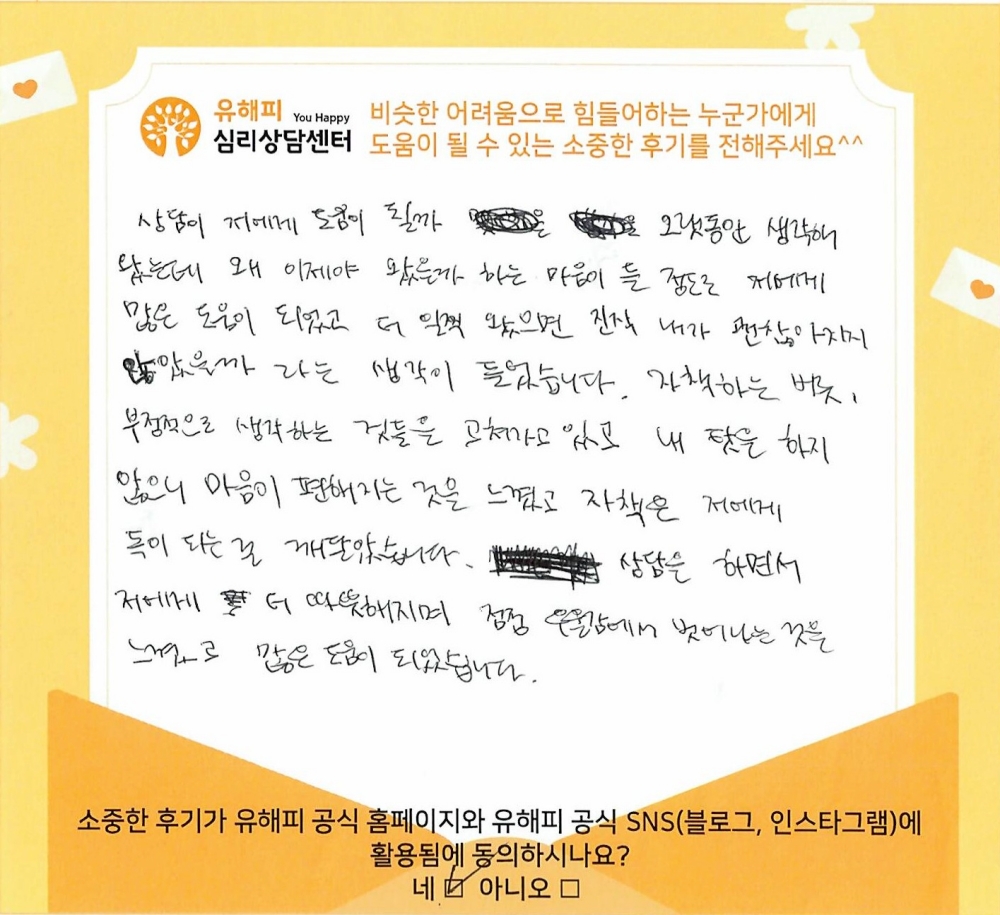 유해피
You Happy
심리상담센터
비슷한 어려움으로 힘들어하는 누군가에게
도움이 될 수 있는 소중한 후기를 전해주세요^^
상담이 저에게 도움이 될까 오랫동안 생각해
왔는데 왜 이제야 왔을까 하는 마음이 들 정도로 저에게
많은 도움이 되었고 더 일찍 왔으면 진작 내가 괜찮아지지
않았을까 라는 생각이 들었습니다. 자책하는 버릇,
부정적으로 생각하는 것들을 고쳐가고 있고 내 탓을 하지
않으니 마음이 편해지는 것을 느꼈고 자책은 저에게
독이 되는 걸 깨달았습니다. 상담을 하면서
저에게 더 따뜻해지며 점점 우울감에서 벗어나는 것을
느꼈고 많은 도움이 되었습니다.
소중한 후기가 유해피 공식 홈페이지와 유해피 공식 SNS(블로그, 인스타그램)에
활용됨에 동의하시나요?
네 ☑ 아니오 ☐